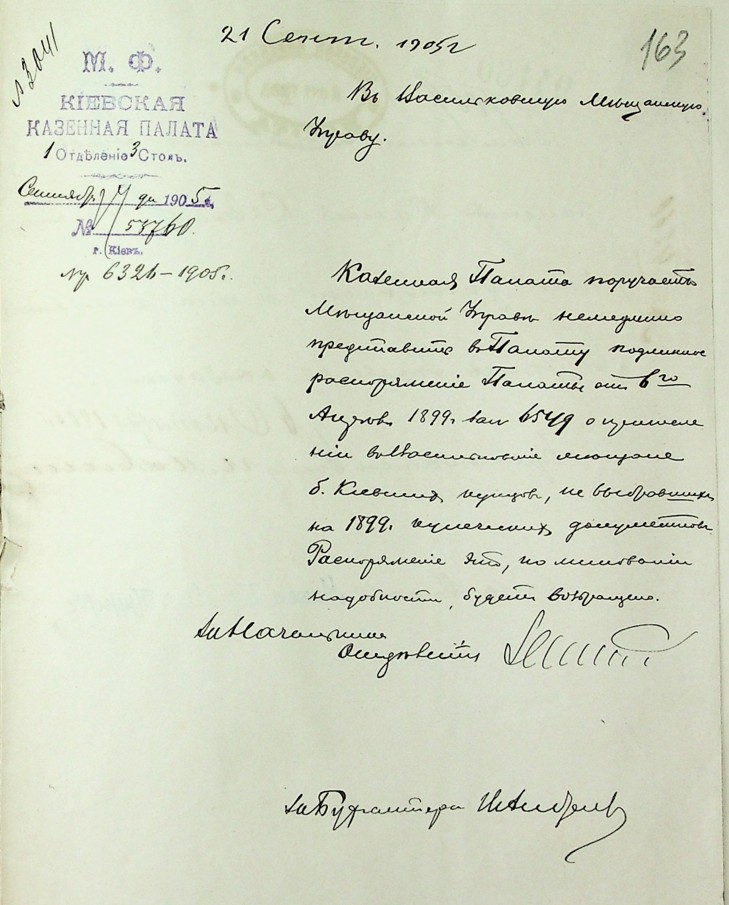 № 3041
21 Сент. 1905 г
163
М. Ф.
КІЕВСКАЯ
КАЗЕННАЯ ПАЛАТА
1 Отдѣленіе 3 Столъ.
Сентября дня 1905 г.
№ 53760.
г. Кіевъ.
6326 – 1905 г.
Въ Васильковскую Мѣщанскую
Управу.
Казенная Палата поручаетъ
Мѣщанской Управѣ немедленно
представить въ Палату подлинное
распоряженіе Палаты отъ 6го
1899 г. за № 6549 о причисле
ніи въ Васильковскіе мѣщане
б. Кіевских купцовъ, не выбравших
на 1899 г. купеческих документовъ.
Распоряженіе это, по минованіи
надобности, будетъ возвращено.
За Начальника
Отдѣленія
за Бухгалтера